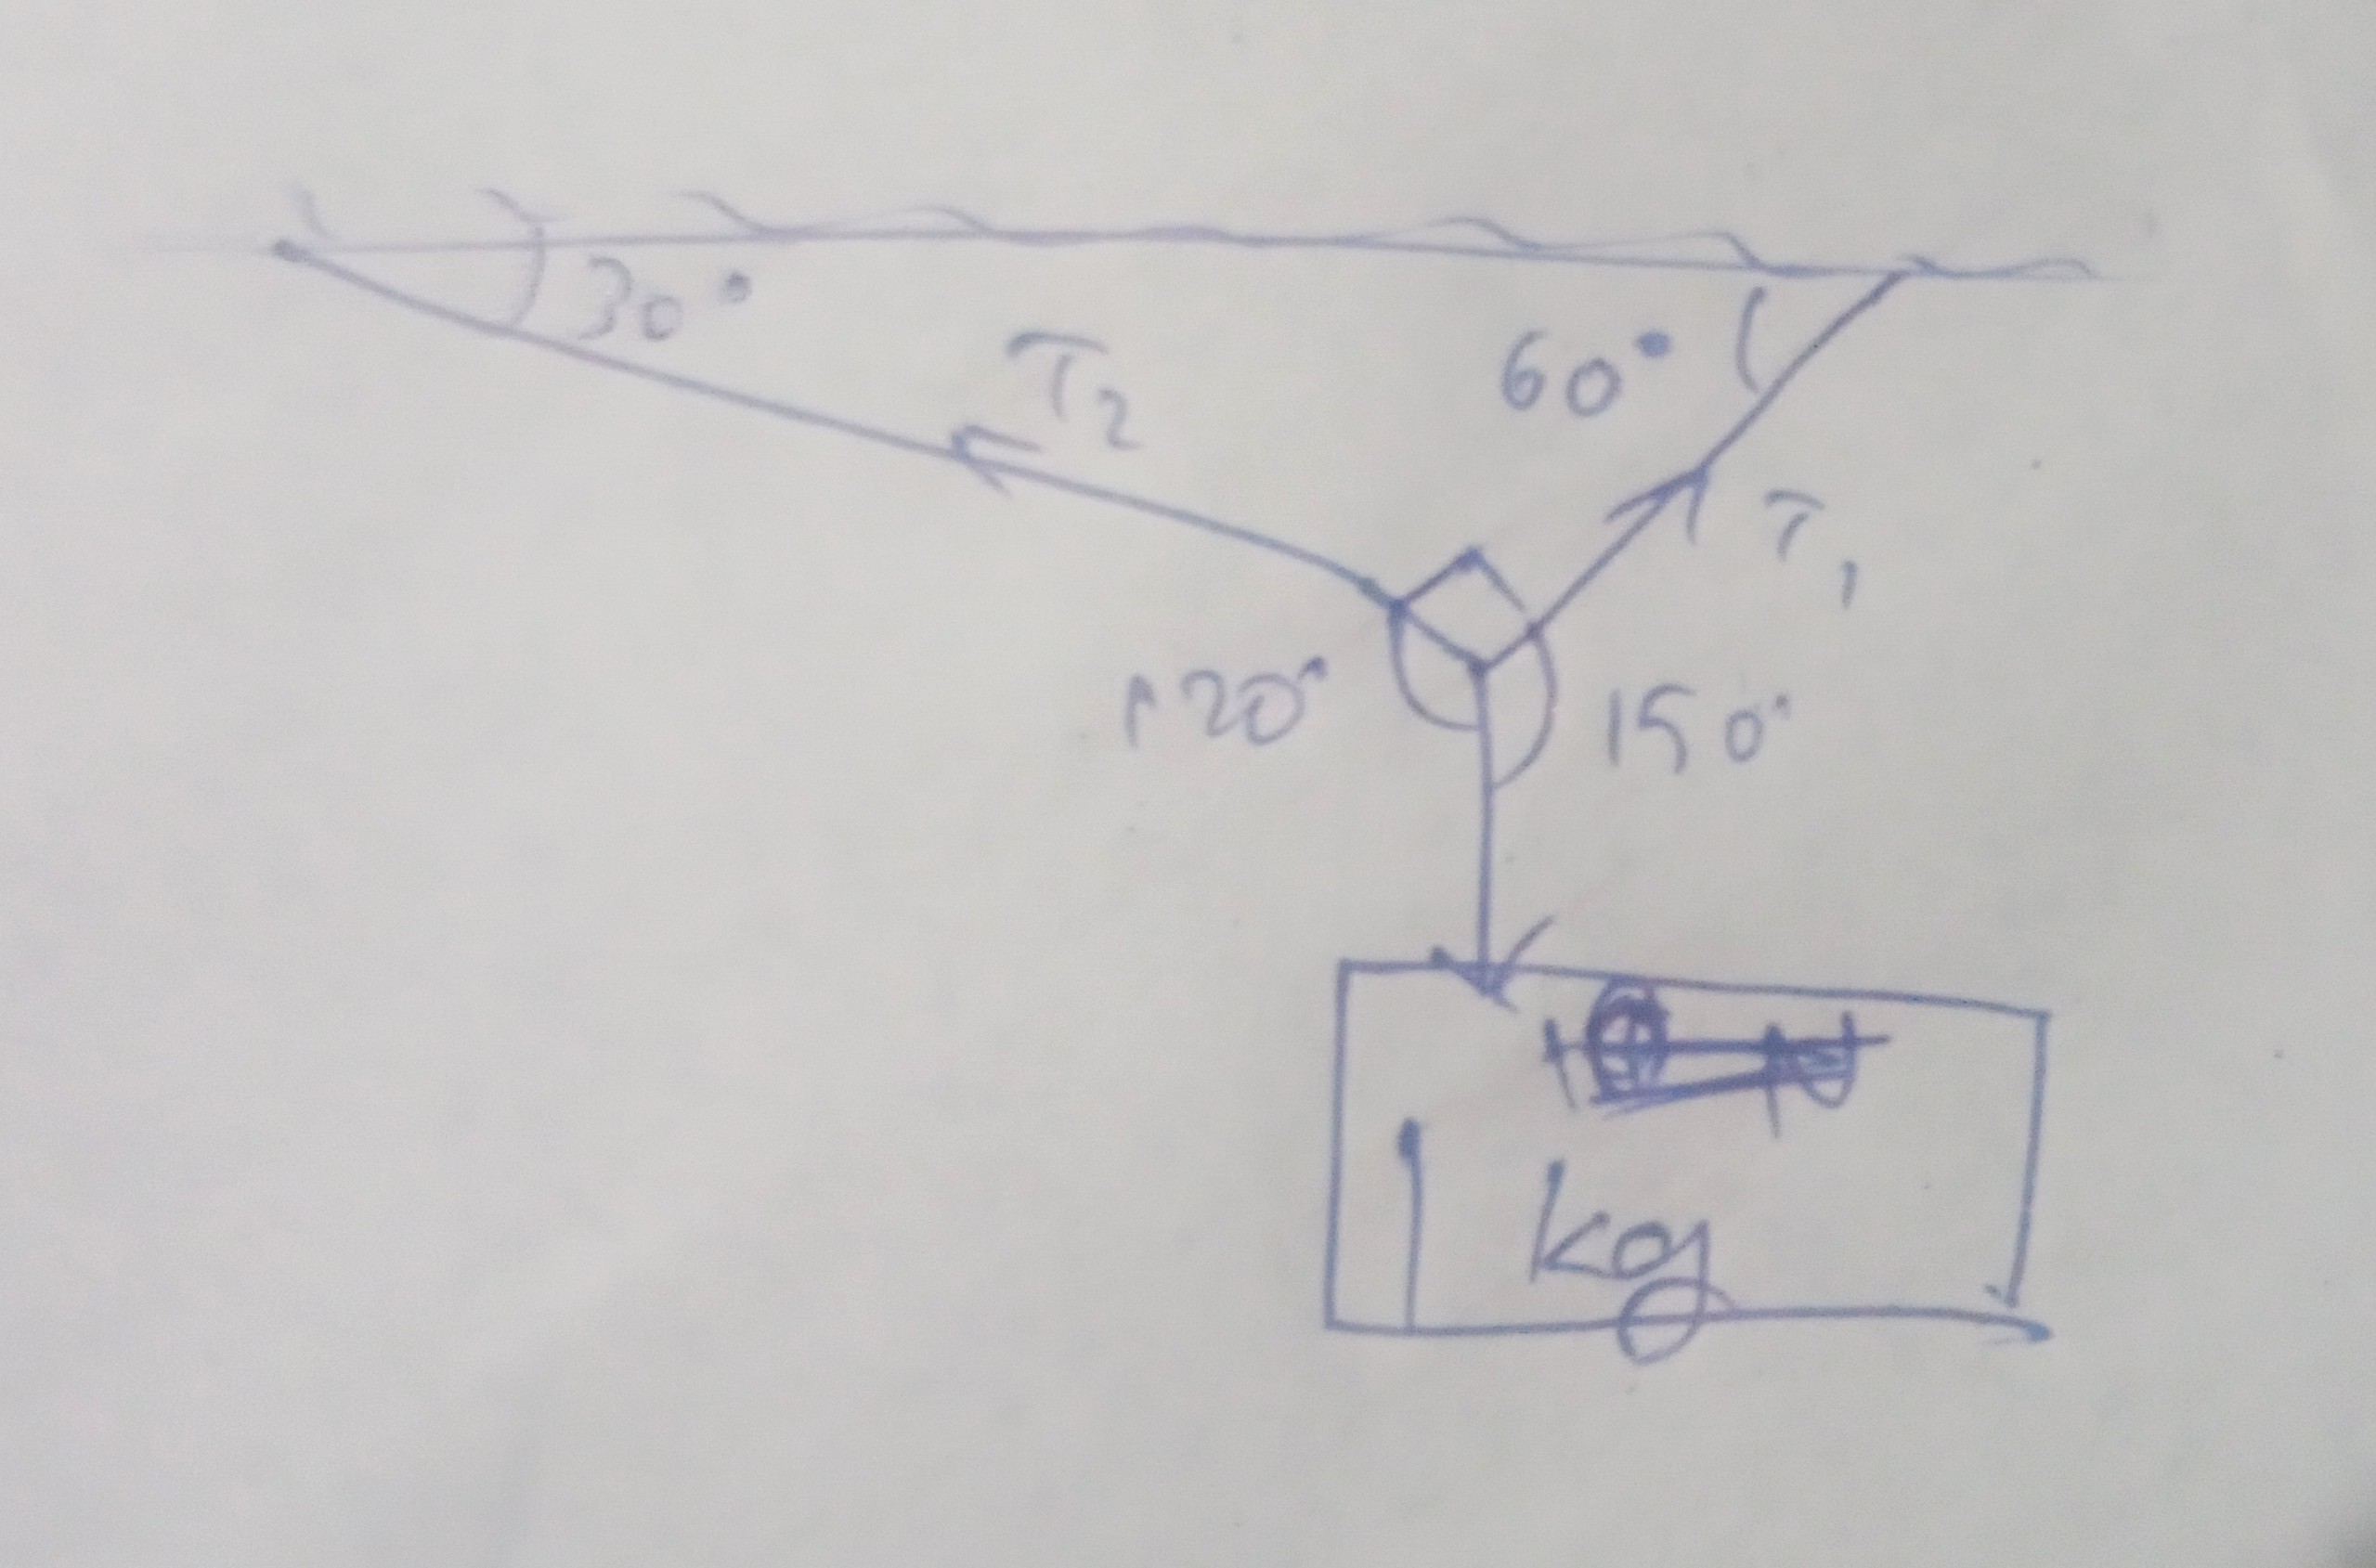 30°
T2
60°
T1
120°
150°
1 kg